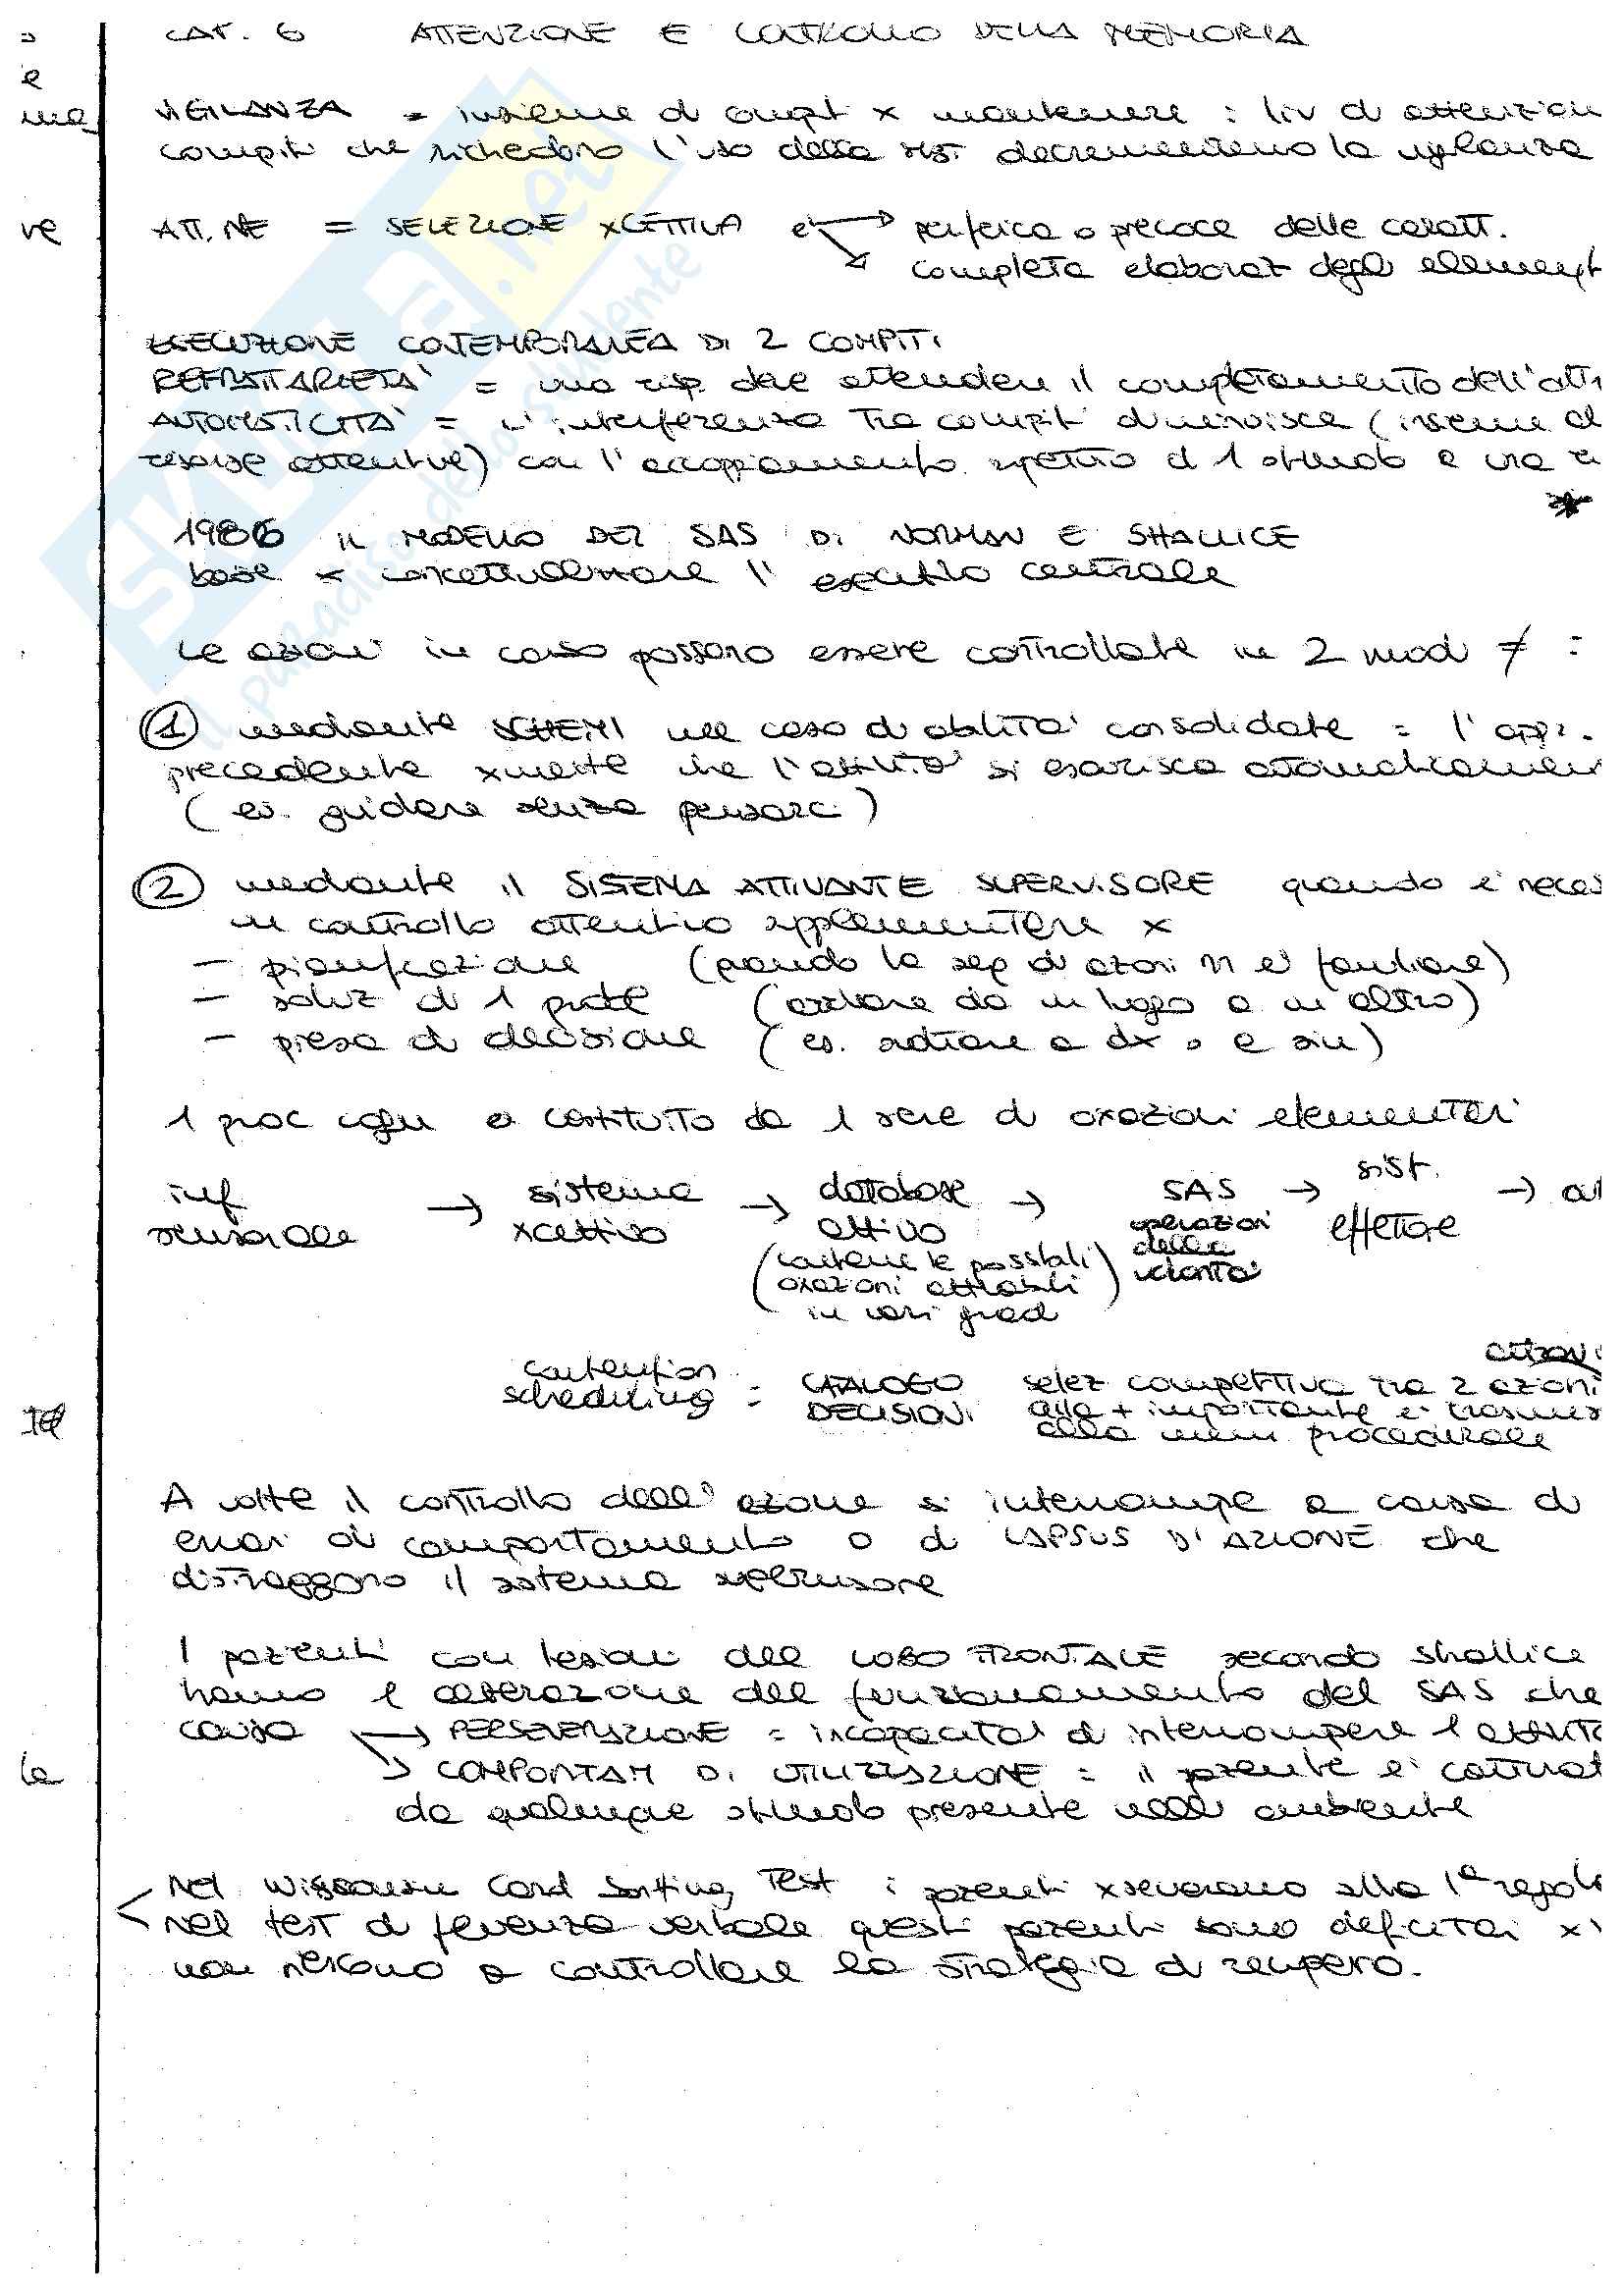 CAP. 6 ATTENZIONE E CONTROLLO DELLA MEMORIA
VIGILANZA = insieme di compiti x mantenere i liv di attenzion
compiti che richiedono l'uso della mem decrementano la vigilanza
ATT.NE = SELEZIONE XCETTIVA è → periferica o precoce delle caratt.
completa elaboraz degli elementi
ESECUZIONE CONTEMPORANEA DI 2 COMPITI
REFRATTARIETA' = una risp deve attendere il completamento dell'altr
AUTOMATICITA' = l'interferenza tra compiti diminuisce (insieme al
risorse attentive) con l'accoppiamento ripetuto di 1 stimolo a una ri
*
1986 IL MODELLO DEL SAS DI NORMAN E SHALLICE
base x concettualizzare l'esecutivo centrale
Le azioni in corso possono essere controllate in 2 mod ≠ :
① mediante SCHEMI nel caso di abilità consolidate = l'appr.
precedente xmette che l'attività si esaurisca automaticamen
(es. guidare senza pensarci)
② mediante il SISTEMA ATTIVANTE SUPERVISORE quando è neces
un controllo attentivo supplementare x
- pianificazione (quando la seq di azioni n è familiare)
- soluz di 1 probl (andare da un luogo a un altro)
- presa di decisione (es. andare a dx o a sin)
1 proc cogn è costituito da 1 serie di oxazioni elementari
inf sensoriale → sistema xcettivo → database attivo → SAS → sist. effettore →
(contiene le possibili oxazioni attivabili in vari gradi)
operazioni della volontà
contention scheduling = CATALOGO DECISIONI
selez competitiva tra 2 azioni
alla + importante è trasmes
alla mem procedurale
A volte il controllo dell'azione si interrompe a causa di
errori di comportamento o di LAPSUS D'AZIONE che
distraggono il sistema supervisore
I pazienti con lesioni del LOBO FRONTALE secondo Shallice
hanno 1 alterazione del funzionamento del SAS che
causa → PERSEVERAZIONE = incapacità di interrompere 1 attività
→ COMPORTAM DI UTILIZZAZIONE = il paziente è catturat
da qualunque stimolo presente nell'ambiente
< Nel Wisconsin Card Sorting Test i pazienti xseverano alla 1ª regola
nel test di fluenza verbale questi pazienti sono deficitari x'
non riescono a controllare la strategia di recupero.
e
ma
ve
le
SKUOLA.net
il paradiso dello studente